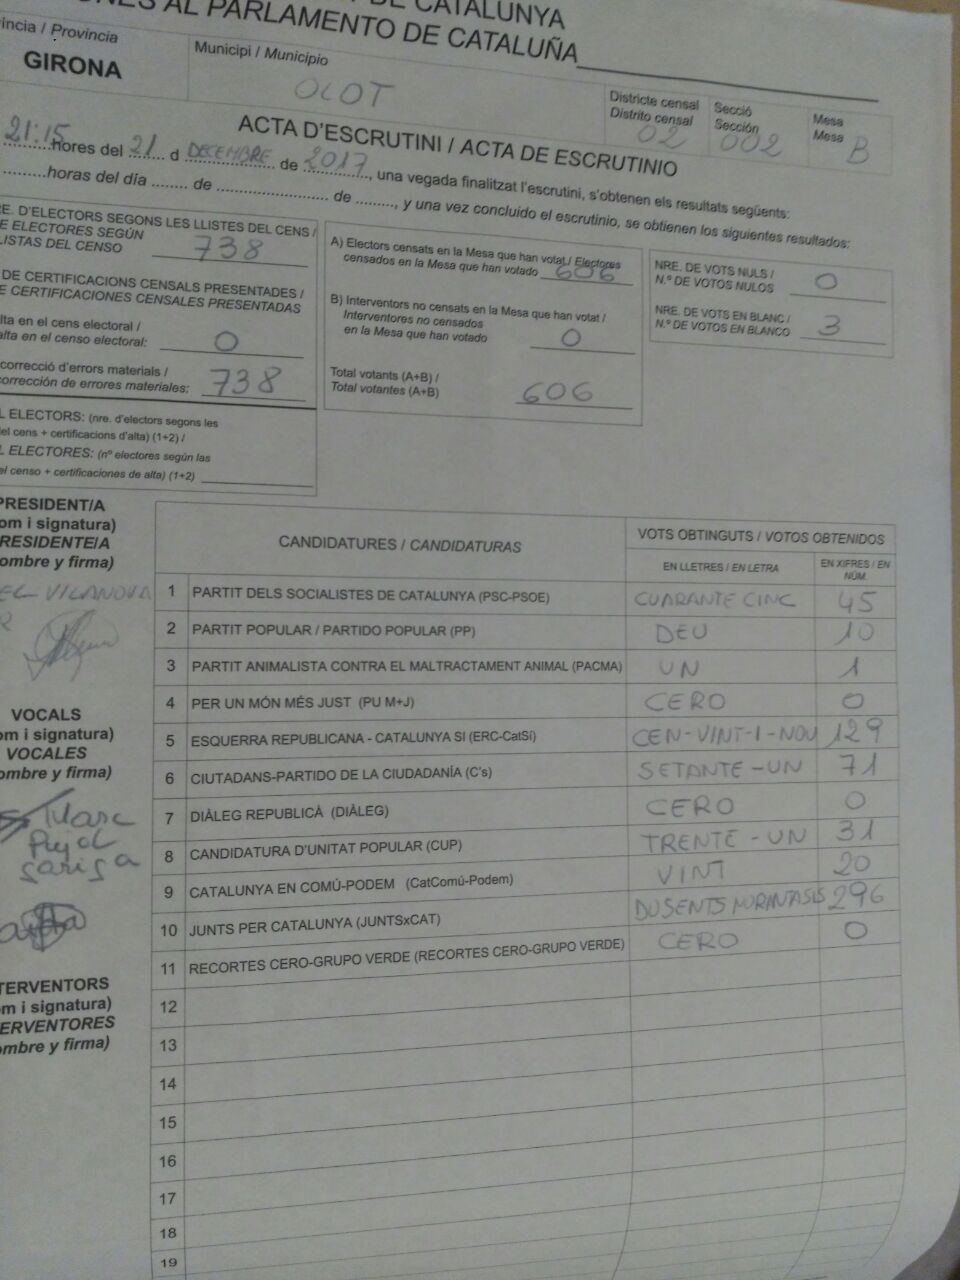 DE CATALUNYA
ONES AL PARLAMENTO DE CATALUÑA
incia / Provincia
GIRONA
Municipi / Municipio
OLOT
Districte censal
Distrito censal
02
Secció
Sección
002
Mesa
Mesa
B
ACTA D'ESCRUTINI / ACTA DE ESCRUTINIO
21:15 hores del 21 d DECEMBRE de 2017, una vegada finalitzat l'escrutini, s'obtenen els resultats següents:
horas del día ........ de ............................ de ........., y una vez concluido el escrutinio, se obtienen los siguientes resultados:
RE. D'ELECTORS SEGONS LES LLISTES DEL CENS /
E ELECTORES SEGÚN
LISTAS DEL CENSO 738
DE CERTIFICACIONS CENSALS PRESENTADES /
E CERTIFICACIONES CENSALES PRESENTADAS
lta en el cens electoral /
alta en el censo electoral: 0
correcció d'errors materials /
corrección de errores materiales: 738
L ELECTORS: (nre. d'electors segons les
el cens + certificacions d'alta) (1+2) /
L ELECTORES: (nº electores según las
el censo + certificaciones de alta) (1+2)
A) Electors censats en la Mesa que han votat / Electores
censados en la Mesa que han votado 606
B) Interventors no censats en la Mesa que han votat /
Interventores no censados
en la Mesa que han votado 0
Total votants (A+B) /
Total votantes (A+B) 606
NRE. DE VOTS NULS /
N.º DE VOTOS NULOS 0
NRE. DE VOTS EN BLANC /
N.º DE VOTOS EN BLANCO 3
PRESIDENT/A
om i signatura)
RESIDENTE/A
ombre y firma)
EL VILANOVA
R
VOCALS
om i signatura)
VOCALES
ombre y firma)
Marc
Pujol
TERVENTORS
m i signatura)
ERVENTORES
ombre y firma)
CANDIDATURES / CANDIDATURAS
VOTS OBTINGUTS / VOTOS OBTENIDOS
EN LLETRES / EN LETRA
EN XIFRES / EN
NÚM.
1 PARTIT DELS SOCIALISTES DE CATALUNYA (PSC-PSOE) CUARANTE CINC 45
2 PARTIT POPULAR / PARTIDO POPULAR (PP) DEU 10
3 PARTIT ANIMALISTA CONTRA EL MALTRACTAMENT ANIMAL (PACMA) UN 1
4 PER UN MÓN MÉS JUST (PU M+J) CERO 0
5 ESQUERRA REPUBLICANA - CATALUNYA SI (ERC-CatSí) CEN-VINT-I-NOU 129
6 CIUTADANS-PARTIDO DE LA CIUDADANÍA (C's) SETANTE-UN 71
7 DIÀLEG REPUBLICÀ (DIÀLEG) CERO 0
8 CANDIDATURA D'UNITAT POPULAR (CUP) TRENTE-UN 31
9 CATALUNYA EN COMÚ-PODEM (CatComú-Podem) VINT 20
10 JUNTS PER CATALUNYA (JUNTSxCAT) DUSENTS NURANTASIS 296
11 RECORTES CERO-GRUPO VERDE (RECORTES CERO-GRUPO VERDE) CERO 0
12
13
14
15
16
17
18
19